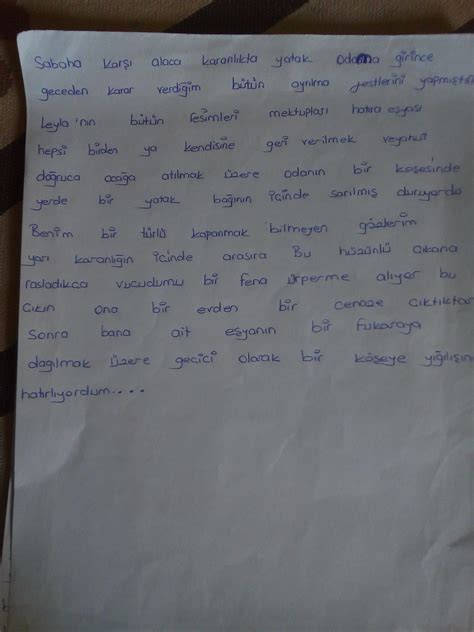 Sabaha karşı alaca karanlıkta yatak odama girince
geceden karar verdiğim bütün ayrılma jestlerini yapmıştım
Leyla'nın bütün resimleri mektupları hatıra eşyası
hepsi birden ya kendisine geri verilmek veyahut
doğruca ocağa atılmak üzere odanın bir köşesinde
yerde bir yatak bağının içinde sarılmış duruyordu
Benim bir türlü kapanmak bilmeyen gözlerim
yarı karanlığın içinde arasıra Bu hüzünlü çıkana
rasladıkca vucudumu bir fena ürperme alıyor bu
Çıkın ona bir evden bir cenaze çıktıktan
sonra bana ait eşyanın bir fukaraya
dağılmak üzere geçici olarak bir köşeye yığılışını
hatırlıyordum....